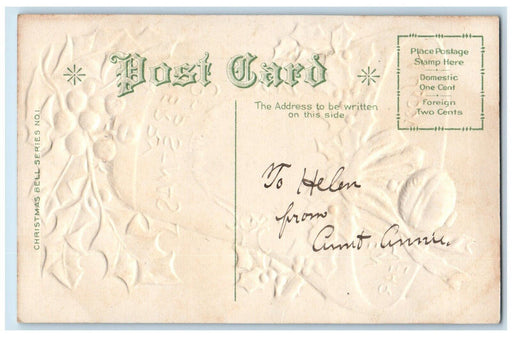 Post Card
The Address to be written
on this side
Place Postage
Stamp Here
Domestic
One Cent
Foreign
Two Cents
CHRISTMAS BELL SERIES NO. 1
To Helen
from
Aunt Annie.